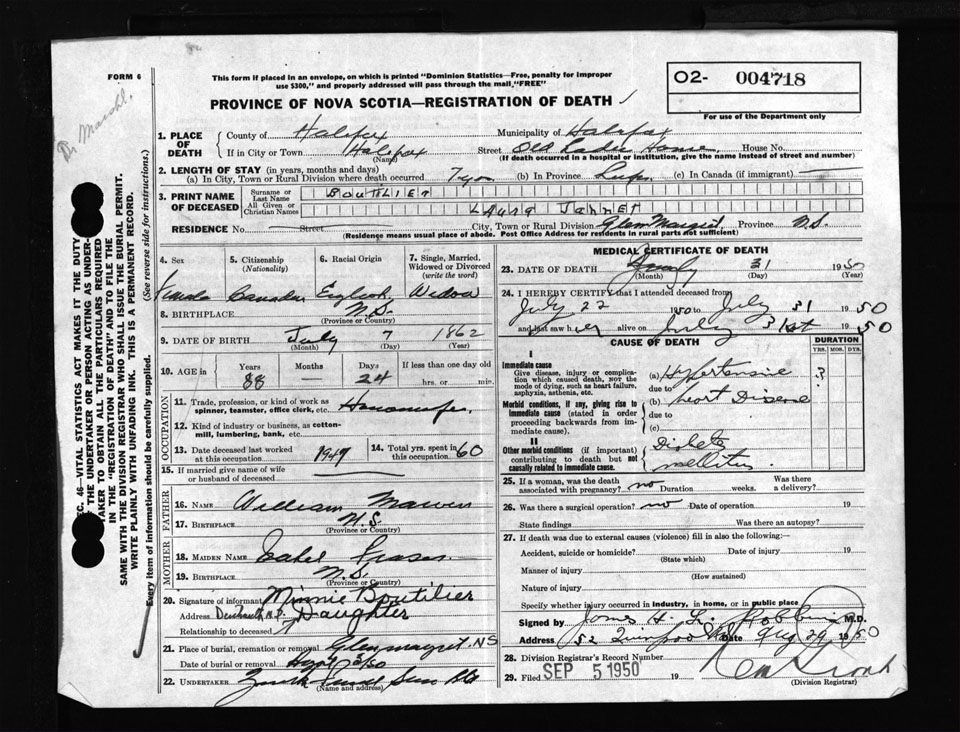 FORM 6
This form if placed in an envelope, on which is printed "Dominion Statistics—Free, penalty for improper
use $300," and properly addressed will pass through the mail, "FREE"
PROVINCE OF NOVA SCOTIA—REGISTRATION OF DEATH
02- 004718
For use of the Department only
1. PLACE OF DEATH
County of Halifax
Municipality of Halifax
If in City or Town Halifax Street Old Ladies Home House No.
(Name)
(If death occurred in a hospital or institution, give the name instead of street and number)
2. LENGTH OF STAY (in years, months and days)
(a) In City, Town or Rural Division where death occurred 7 yrs (b) In Province Life (c) In Canada (if immigrant)
3. PRINT NAME OF DECEASED
Surname or Last Name BOUTILIER
All Given or Christian Names LAURA JANNET
RESIDENCE No. Street City, Town or Rural Division Glen Margret, Province N.S.
(Residence means usual place of abode. Post Office Address for residents in rural parts not sufficient)
4. Sex
Female
5. Citizenship (Nationality)
Canadian
6. Racial Origin
English
7. Single, Married, Widowed or Divorced (write the word)
Widow
8. BIRTHPLACE N.S.
(Province or Country)
9. DATE OF BIRTH July 7 1862
(Month) (Day) (Year)
10. AGE in Years Months Days If less than one day old
88 — 24 hrs. or min.
OCCUPATION
11. Trade, profession, or kind of work as
spinner, teamster, office clerk, etc. Housewife
12. Kind of industry or business, as cotton-
mill, lumbering, bank, etc.
13. Date deceased last worked
at this occupation 1947
14. Total yrs. spent in
this occupation 60
15. If married give name of wife
or husband of deceased
FATHER
16. Name William
17. Birthplace N.S.
(Province or Country)
MOTHER
18. Maiden Name
19. Birthplace N.S.
(Province or Country)
20. Signature of informant Minnie Boutilier
Address Dartmouth N.S.
Relationship to deceased Daughter
21. Place of burial, cremation or removal Glenmargret N.S.
Date of burial or removal 2/50
22. Undertaker
(Name and address)
MEDICAL CERTIFICATE OF DEATH
23. DATE OF DEATH July 31 1950
(Month) (Day) (Year)
24. I HEREBY CERTIFY that I attended deceased from
July 22 1950 to July 31 1950
and last saw her alive on July 31st 1950
CAUSE OF DEATH
DURATION
YRS. MOS. DYS.
I
Immediate cause
Give disease, injury or complica-
tion which caused death, NOT the
mode of dying, such as heart failure,
asphyxia, asthenia, etc.
(a) Hypertensive ?
due to
Morbid conditions, if any, giving rise to
immediate cause (stated in order
proceeding backwards from im-
mediate cause).
(b) heart Disease
due to
(c)
II
Other morbid conditions (if important)
contributing to death but not
causally related to immediate cause.
Diabetes
mellitus
25. If a woman, was the death
associated with pregnancy? no Duration weeks. Was there a delivery?
26. Was there a surgical operation? no Date of operation 19
State findings Was there an autopsy?
27. If death was due to external causes (violence) fill in also the following:—
Accident, suicide or homicide? Date of injury 19
(State which)
Manner of injury
(How sustained)
Nature of injury
Specify whether injury occurred in industry, in home, or in public place
Signed by James H. L. Robbins M.D.
Address 52 Quinpool Rd Date Aug 29 1950
28. Division Registrar's Record Number
29. Filed SEP 5 1950 19
(Division Registrar)
SEC. 46—VITAL STATISTICS ACT MAKES IT THE DUTY
OF THE UNDERTAKER OR PERSON ACTING AS UNDER-
TAKER TO OBTAIN ALL THE PARTICULARS REQUIRED
IN THE "REGISTRATION OF DEATH" AND TO FILE THE
SAME WITH THE DIVISION REGISTRAR WHO SHALL ISSUE THE BURIAL PERMIT.
WRITE PLAINLY WITH UNFADING INK. THIS IS A PERMANENT RECORD.
Every item of information should be carefully supplied. (See reverse side for instructions.)